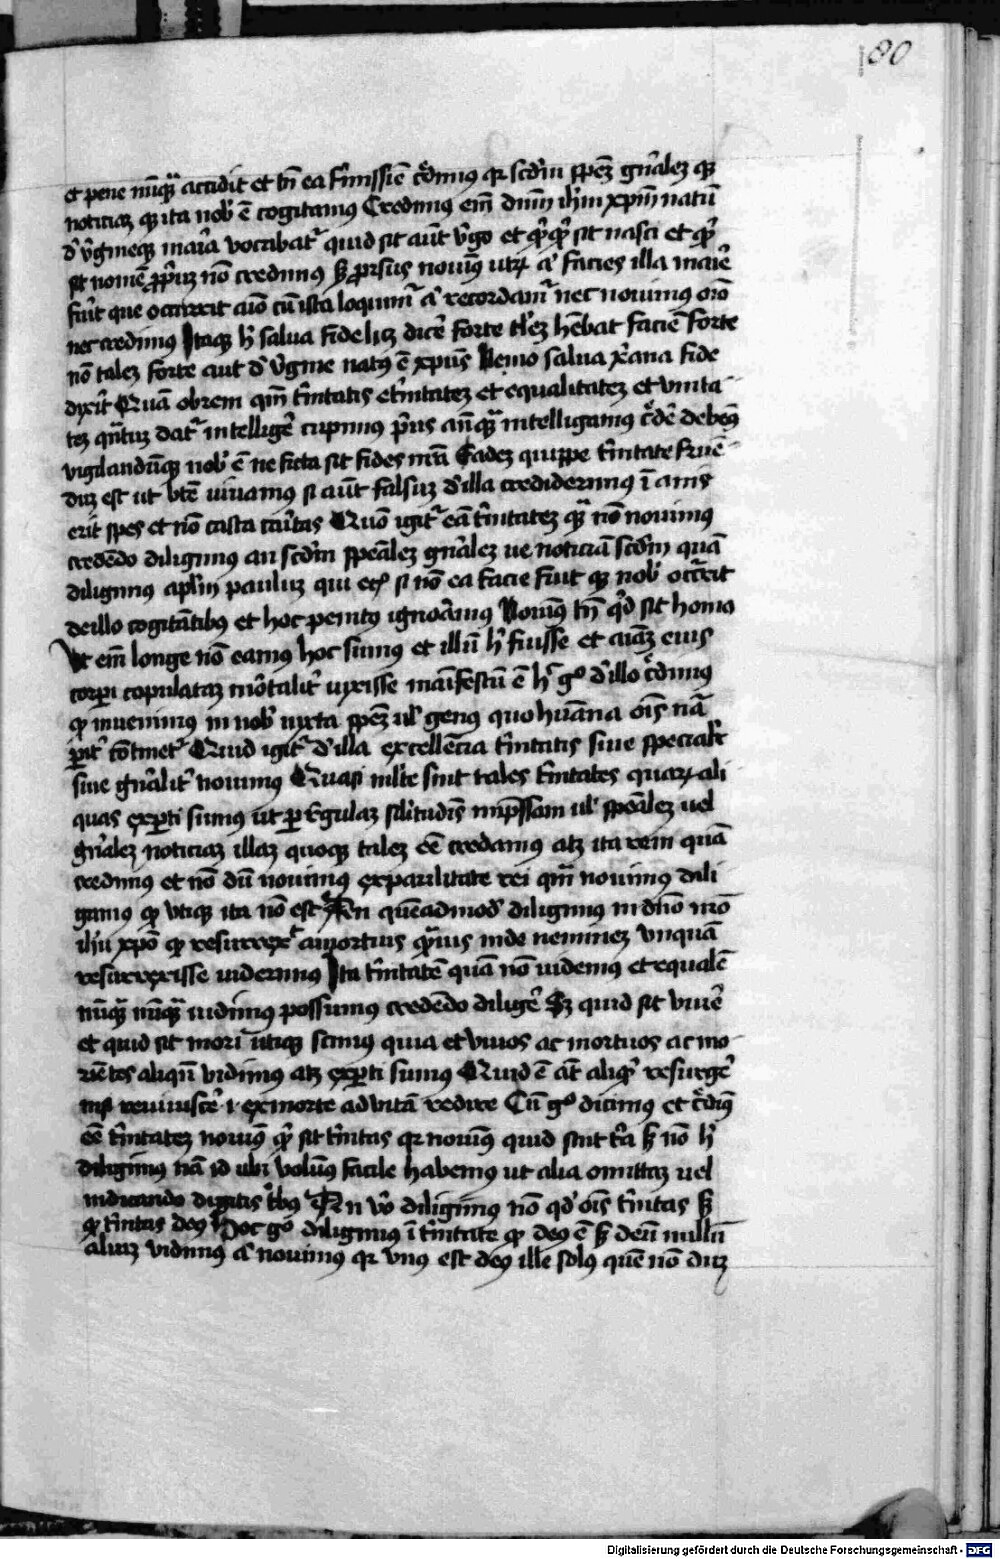 180
et pene nūqᷓ accidit et tn̄ ea firmissīe c̄dimus qr scd̄m spēz gn̄alez qz
noticiaz qz ita nob̾ ē cogitamus Credimus em̄ dnm̄ ihm̄ xpm̄ natū
d̾ v̾gine que mar̾ia vocabat᷑ quid sit aūt v̾go et qͥd sit nasci et qͥd
sit nomē ꝓpriuz nō credimus sꝫ ꝓrsus nouimꝰ utrum aūt facies illa marie
fuīt que occurrit aīo cū ista loquim᷑ aut recordam᷑ nec nouimus oīno
nec credimus Itaqꝫ h̾ salua fide licz dicē forte talez hēbat faciē forte
nō talez forte aut d̾ v̾gine natꝰ ē xpus Nemo salua xr̄ana fide
dixīt Quā obrem qm̄ t̾nitatis et̾nitatez et equalitatez et vnita
tez qn̄tuz dat᷑ intellige᷑ cupimus pͥus an̄qᷓ intelligamus c̄de᷑ debemꝰ
vigilandūqꝫ nob̾ ē ne ficta sit fides nr̄a Eadez quippe t̾nitate fruē
duz est ut bt̄e uiuamus si aūt falsuz d̾illa crediderimus īanis
erit spes et nō casta cāritas Quō igit᷑ eā t̾nitatez qᷓ nō nouimus
credēdo diligimus an scd̄m spēalez gn̄alez ue noticiā scd̄m quā
diligimus apl̄m pauluz qui etſi nō ea facie fuit qz nob̾ occ̄rrit
deillo cogitātibꝰ et hoc penitꝰ ignoāmus Nouimꝰ tn̄ qͥd sit homo
Ut em̄ longe nō eamus hoc sumus et illū h̾ fuisse et aīaz eius
corpi copulataz mōtalit᷑ vixisse maīfestū ē h̾ gͦ d̾illo c̄dimus
qͩ inuenimus in nob̾ iuxta spēz ul̾ genus quo hūana oīs nā
ꝑit̾ cōtinet᷑ Quid igit᷑ d̾illa excellēcia t̾nitatis siue specialr̾
siue gn̄alit᷑ nouimus Quasi ml̾te sint tales t̾nitates quarum ali
quas exꝑti sumus ut ꝑ r̾gulaz sil̾itudīs imp̄ssam ul̾ spēalez uel
gn̄alez noticiaz illaz quoqꝫ talez eē credamus atꝫ ita rem quā
credimus et nō dū nouimus exparilitate rei qm̄ nouimus dili
gamus qͩ vtiqꝫ ita nō est An quēadmodū diligimus in dn̄o nr̄o
ihū xpō qͩ resurrexit amortuis qᷓuis inde neminez vnquā
resurrexisse uiderimus Ita t̾nitatē quā nō uidemus et equalē
nūqᷓ nūqᷓ uidimus possumus credēdo dilige᷑ Sꝫ quid sit viue᷑
et quid sit mori utiqꝫ scimus quia et viuos ac mortuos ac mo
riētes aliqn̄ vidimus atꝫ exꝑti sumus Quid ē āt aliqͩ resurge᷑
nisi reuiuisce᷑ .i. exmorte ad vitā redire Cū gͦ dicimus et c̄dimꝰ
eē t̾nitatez nouimꝰ qͥd sit t̾nitas qr nouimꝰ quid sint tria sꝫ nō h̾
diligimus nā id ubi volumꝰ facile habemus ut alia omittaz uel
indicando digitis tribꝰ An vo̾ diligimus nō qd̾ oīs t̾nitas sꝫ
qͩ t̾nitas deꝰ Hoc gͦ diligimus ī t̾nitate qͩ deꝰ ē sꝫ deū nullū
aliuz vidimus aut nouimus qr vnus est deꝰ ille solꝰ quē nō duz
Digitalisierung gefördert durch die Deutsche Forschungsgemeinschaft - DFG